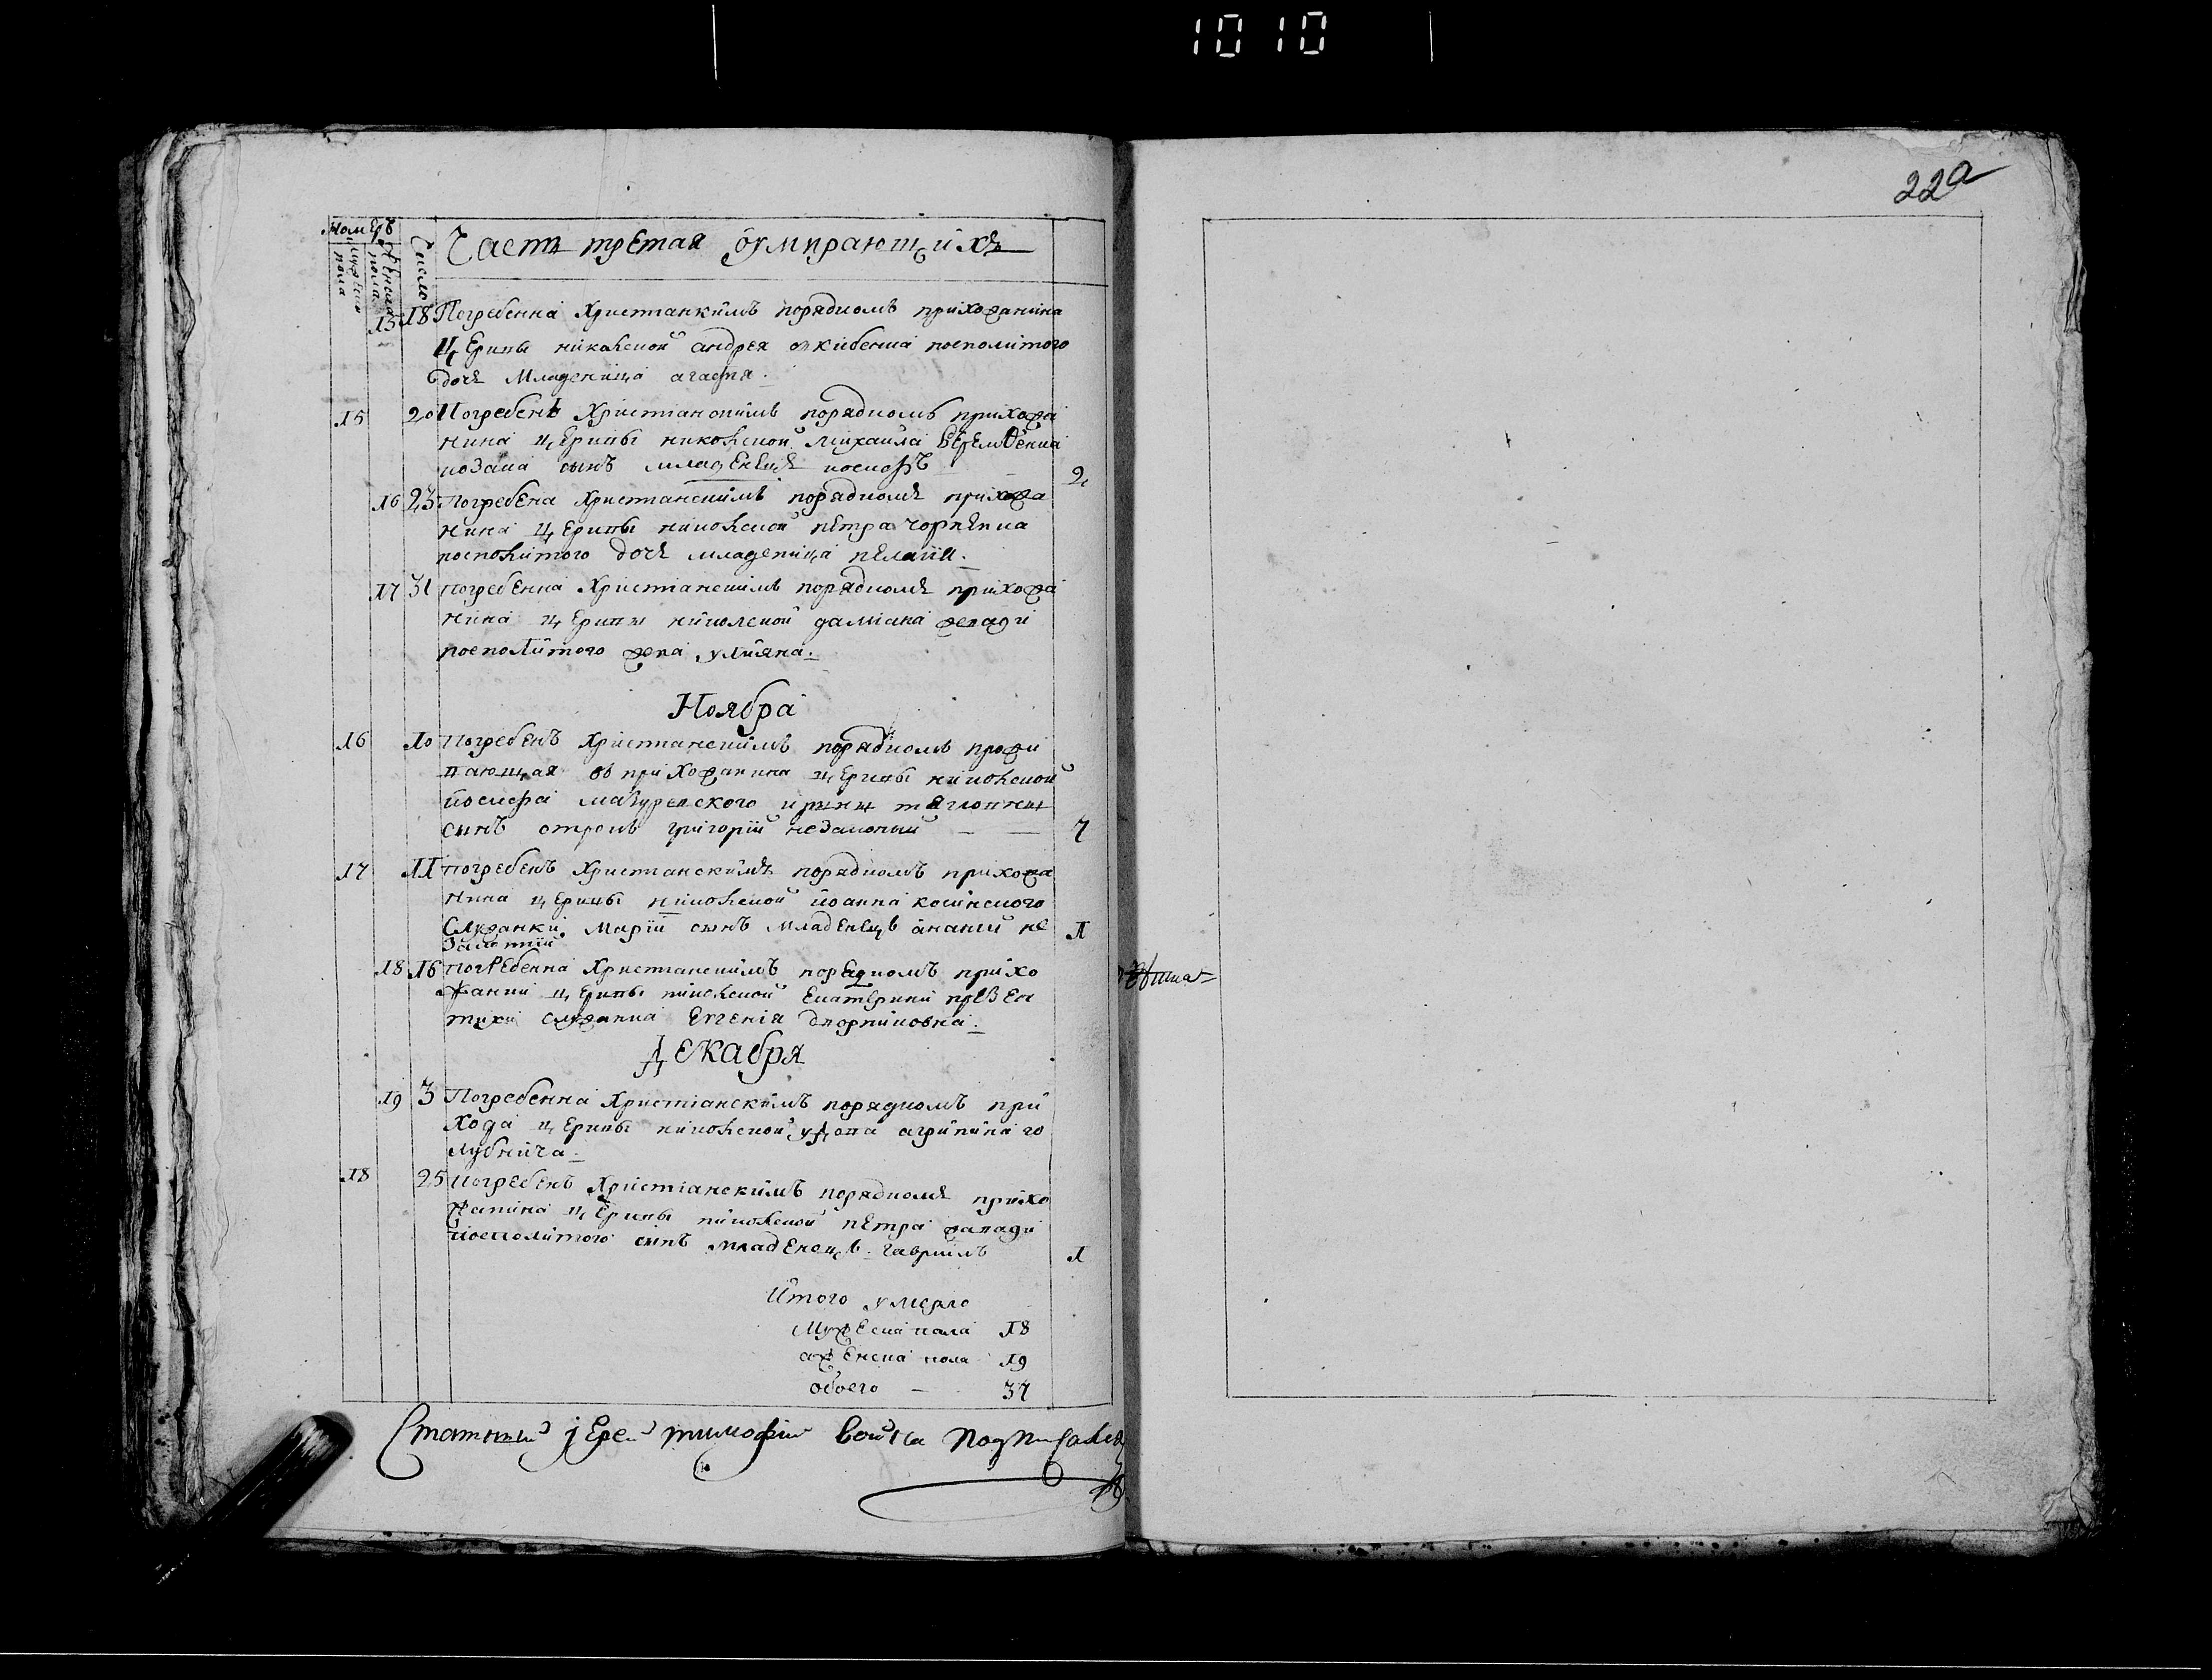 1010
22а
Номеръ
Мужеска пола
Женска пола
Число
Часть третая оумирающихъ
15 18 Погребенна Христианкимъ порядкомъ прихожанина
Церкви николской андрея посполитого
дочь Младеница агафия.
15 20 Погребенъ Христианскимъ порядкомъ прихожа
нина церкви николской Михаила
козака сынъ младенецъ иосифъ 2
16 23 Погребена Христианскимъ порядкомъ прихожа
нина церкви николской петра
посполитого дочь младеница пелагия.
17 31 погребенна Христианскимъ порядкомъ прихожа
нина церкви николской дамиана
посполитого жена улияна.
Ноября
16 10 Погребенъ Христианскимъ порядкомъ прожи
вающая въ прихожанина церкви николской
иосифа
сынъ отрокъ григорий незаконий 7
17 11 погребенъ Христианскимъ порядкомъ прихожа
нина церкви николской иоанна косинского
Служанки Марии сынъ младенецъ ананий не 1
законий
18 16 погребенна Христианскимъ порядкомъ прихо
жанки церкви николской Екатерини
служанка Евгения
Декабря
19 3 Погребенна Христианскимъ порядкомъ при
хода церкви николской удова агрипина го
лубнича.
18 25 погребенъ Христианскимъ порядкомъ прихо
жанина церкви николской петра
посполитого синъ младенецъ гавриилъ 1
Итого умерло
Мужеска пола 18
а женска пола 19
обоего — 37
іерей тимофий войка подписался